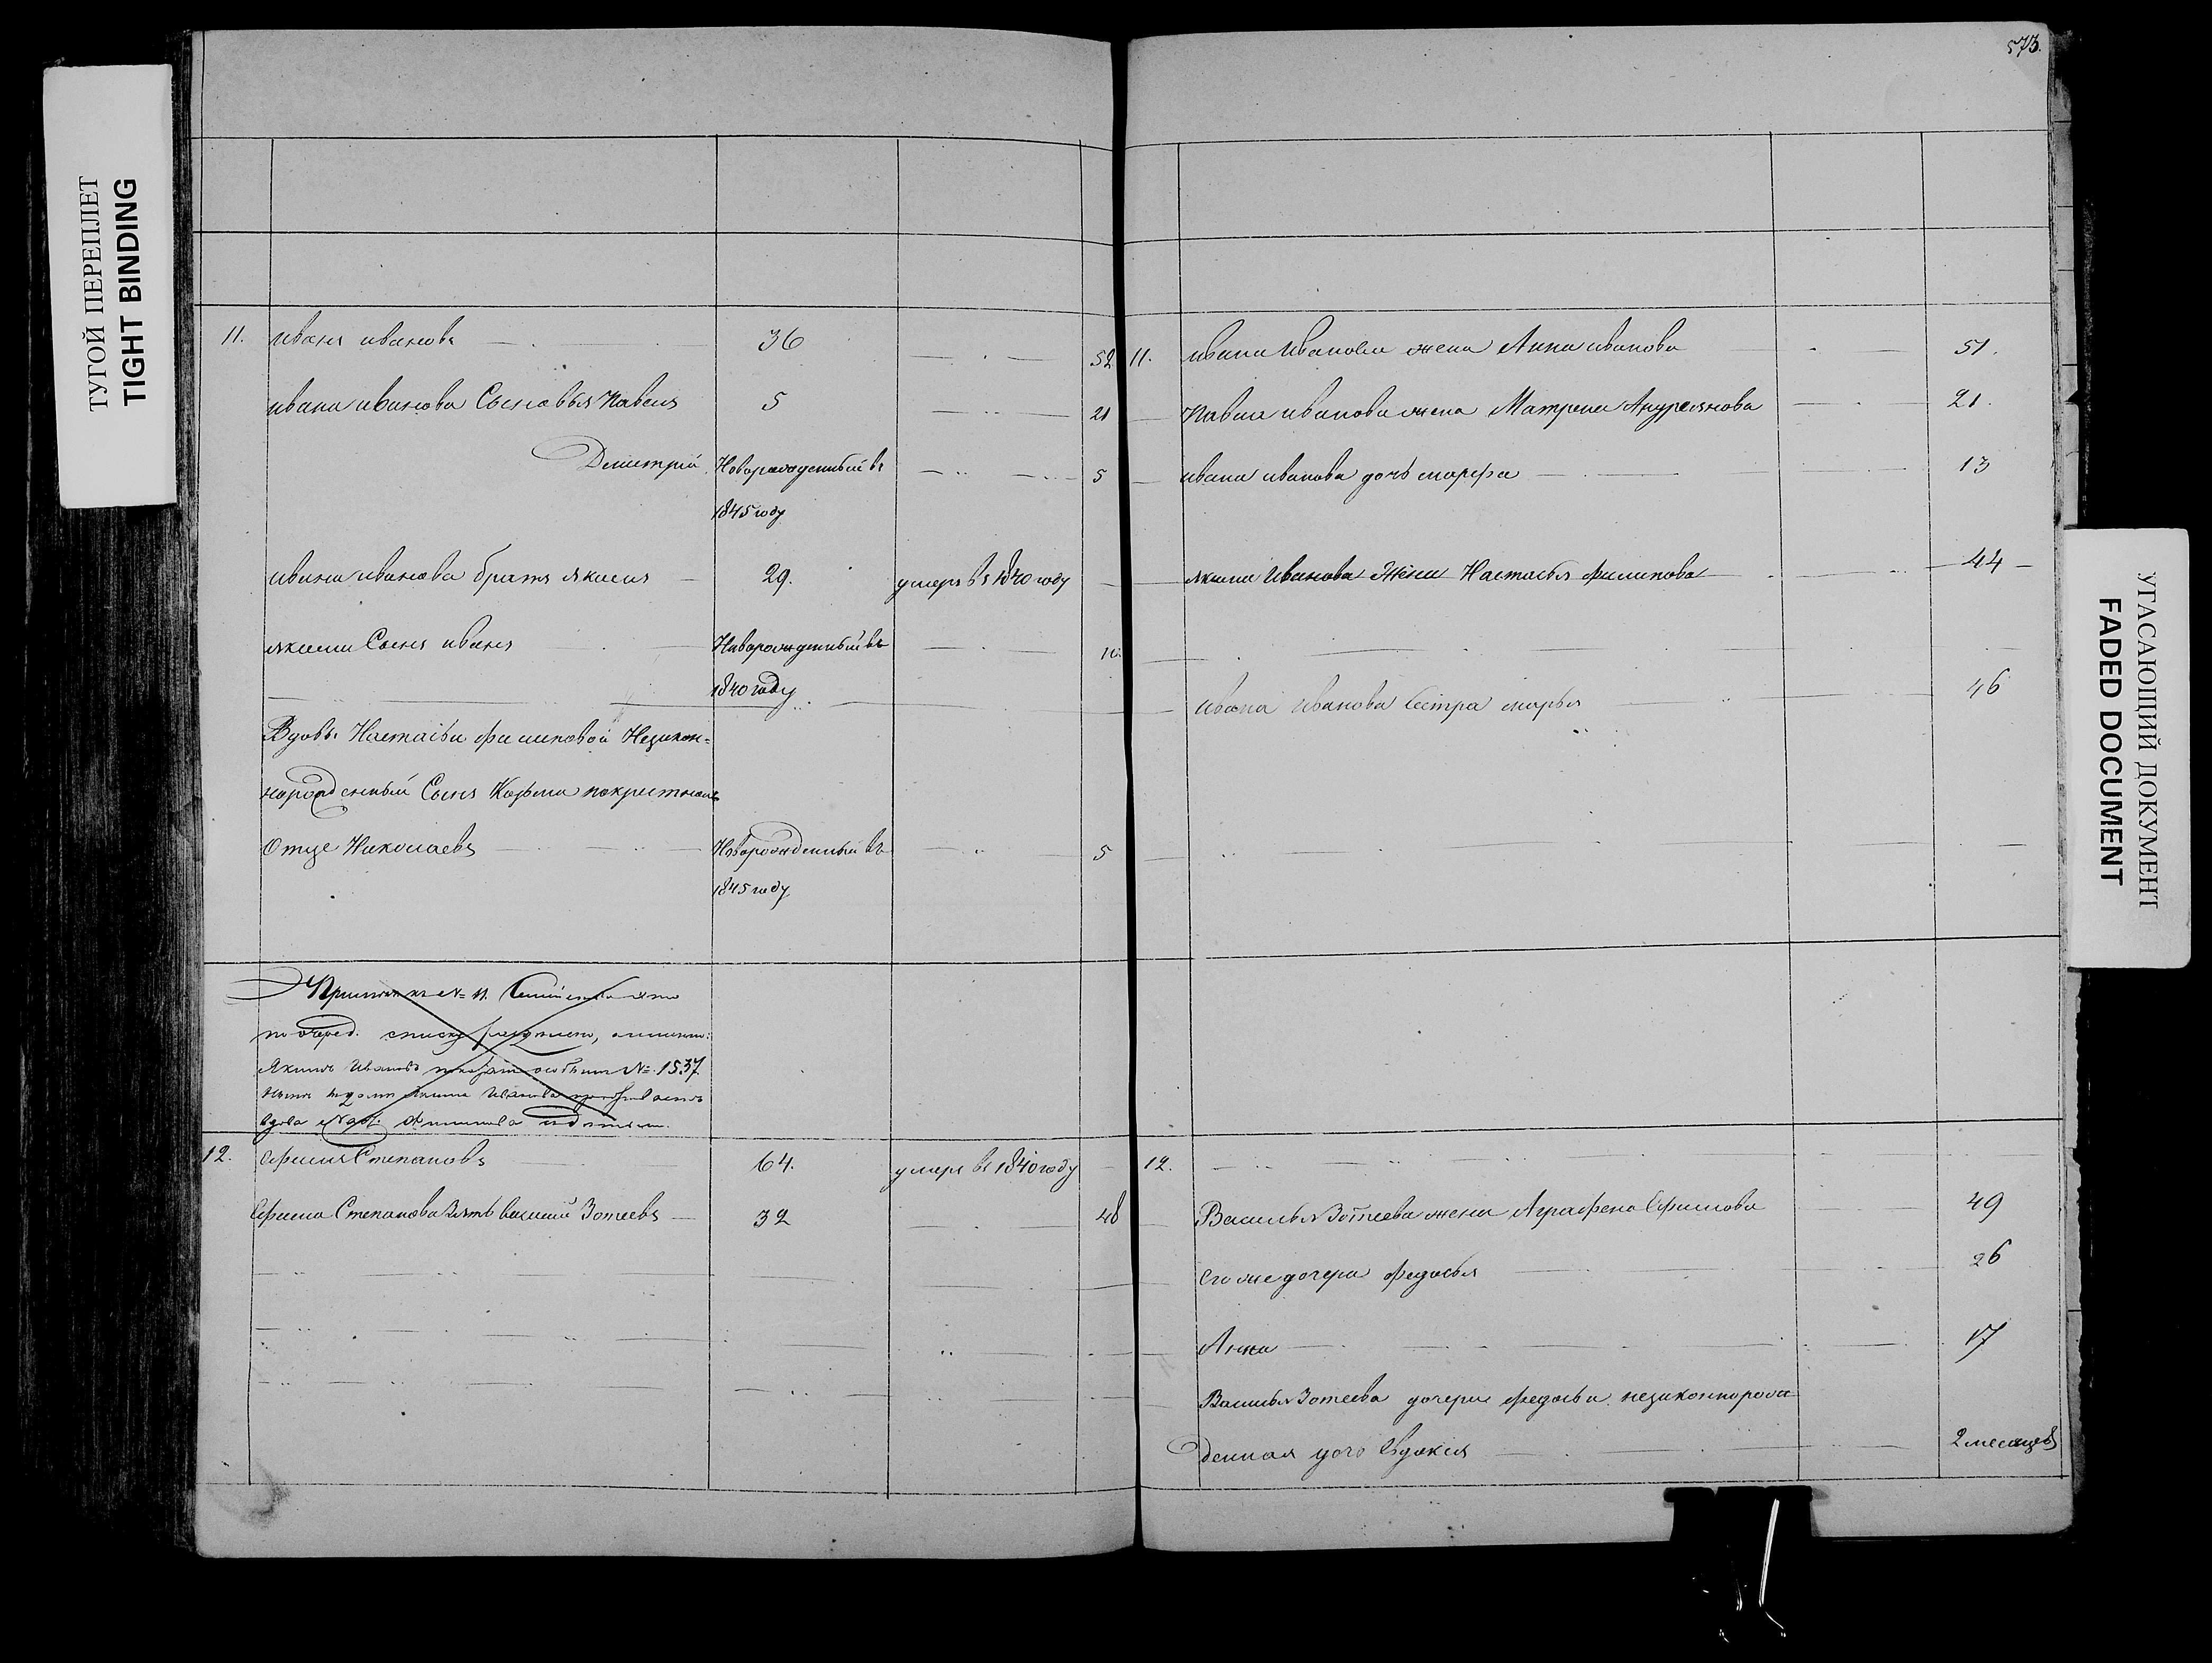 573.
ТУГОЙ ПЕРЕПЛЕТ
TIGHT BINDING
11. Иванъ Ивановъ 36 52
Ивана Иванова Сыновья Павелъ 5 21
Дмитрій Новорожденный въ 5
1845 году
Ивана Иванова братъ Якимъ 29. умеръ въ 1840 году
Якима Сынъ Иванъ Новорожденный въ 10.
1840 году
Вдовы Настасьи Филиповой Незакон-
норожденный Сынъ Козьма покрестном
Отце Николаевъ Новорожденный въ 5
1845 году
№ 11.
по очеред. списку
Якимъ Ивановъ особымъ № 1537
Якима Иванова
вдова Филипова
12. Ефимъ Степановъ 64. умеръ въ 1840 году
Ефима Степанова Зять Василий Зотеевъ 32 48
11. Ивана Иванова жена Анна Иванова 51.
Павла Иванова жена Матрена Андреянова 21.
Ивана Иванова дочь марфа 13
Якима Иванова Жена Настасья Филипова 44
Ивана Иванова Сестра марья 46
12.
Василья Зотеева жена Аграфена Ефимова 49
Его же дочери Федосья 26
Анна 17
Василья Зотеева дочери Федосьи незаконнорож
денная дочь Евдокия 2 месяцовъ
УГАСАЮЩИЙ ДОКУМЕНТ
FADED DOCUMENT